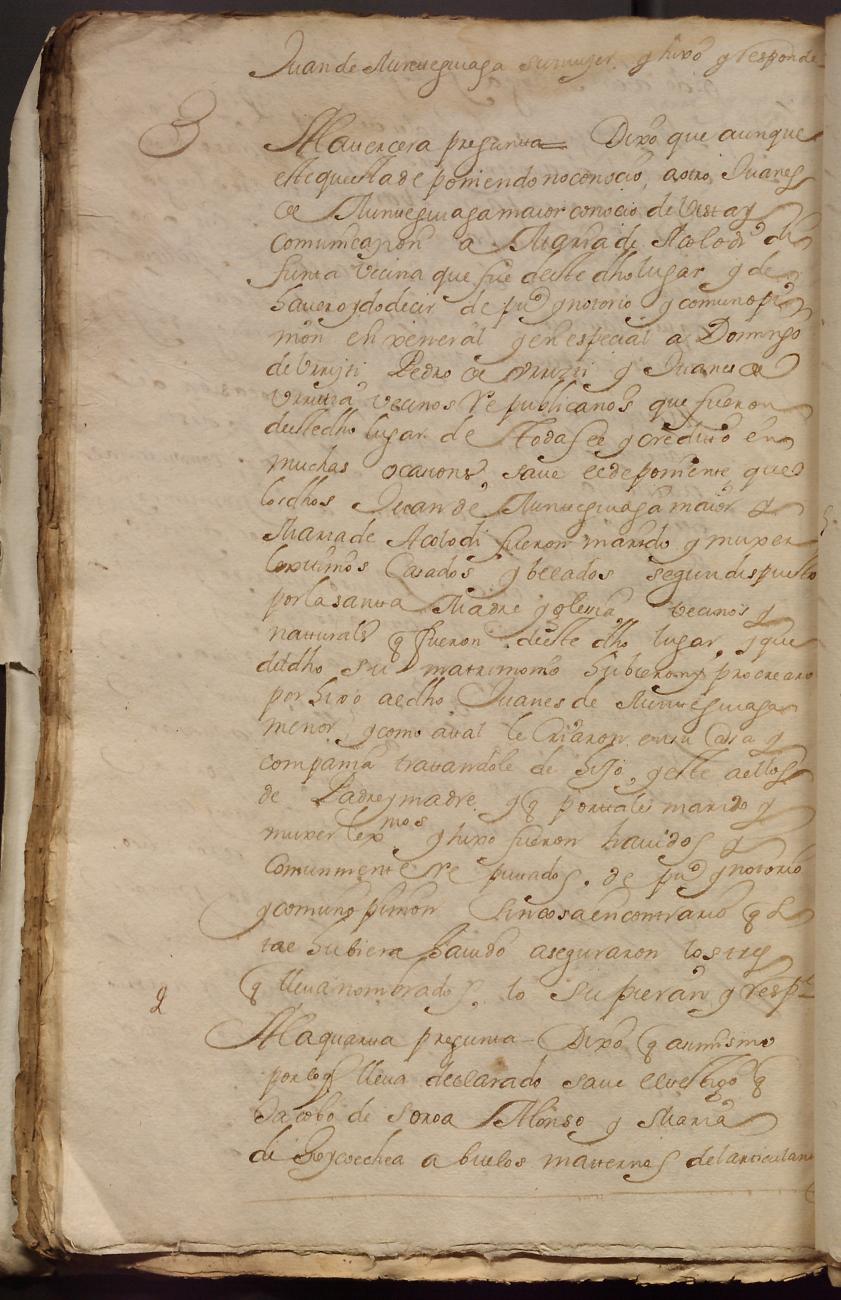 Juan de Aurreguiaga su mujer y hixo y responde
3 A la tercera pregunta = Dixo que aunque
este que esta deponiendo no conocio, a otro Juanes
de maior conocio de vista y
comunicazion a Maria de Acolodi di
funta vecina que fue deste dho lugar y de
haver oydo decir de puco y notorio y comun opi
nion en xeneral y en especial a Domingo
de Pedro de y Juanes de
Urrutia vecinos Republicanos que fueron
deste dho lugar de toda fee y credito en
muchas ocasions, save el deponiente que
los dhos Juan de maior y
Maria de Acolodi fueron marido y muxer
lexitimos Casados y belados segun dispuesto
por la santa Madre yglesia vecinos y
naturals q fueron deste dho lugar, y que
del dho su matrimonio hubieron y procrearo
por hixo al dho Juanes de
menor, y como atal le criaron en su Casa y
compania tratandole de hijo, y este a ellos
de Padre y madre y q por tales marido y
muxer lexmos y hixo fueron havidos y
Comunmente reputados, de puco y notorio
y comun opinion sin cosa en contrario q si
tal hubiera havido aseguraron los tres
q lleva nombrados, lo supieran y respde
4 A la quarta pregunta - Dixo q asimismo
por lo q lleva declarado save el testigo q
Jacobo de Soroa Alonso y Maria
de Goycoechea abuelos maternos del articulante